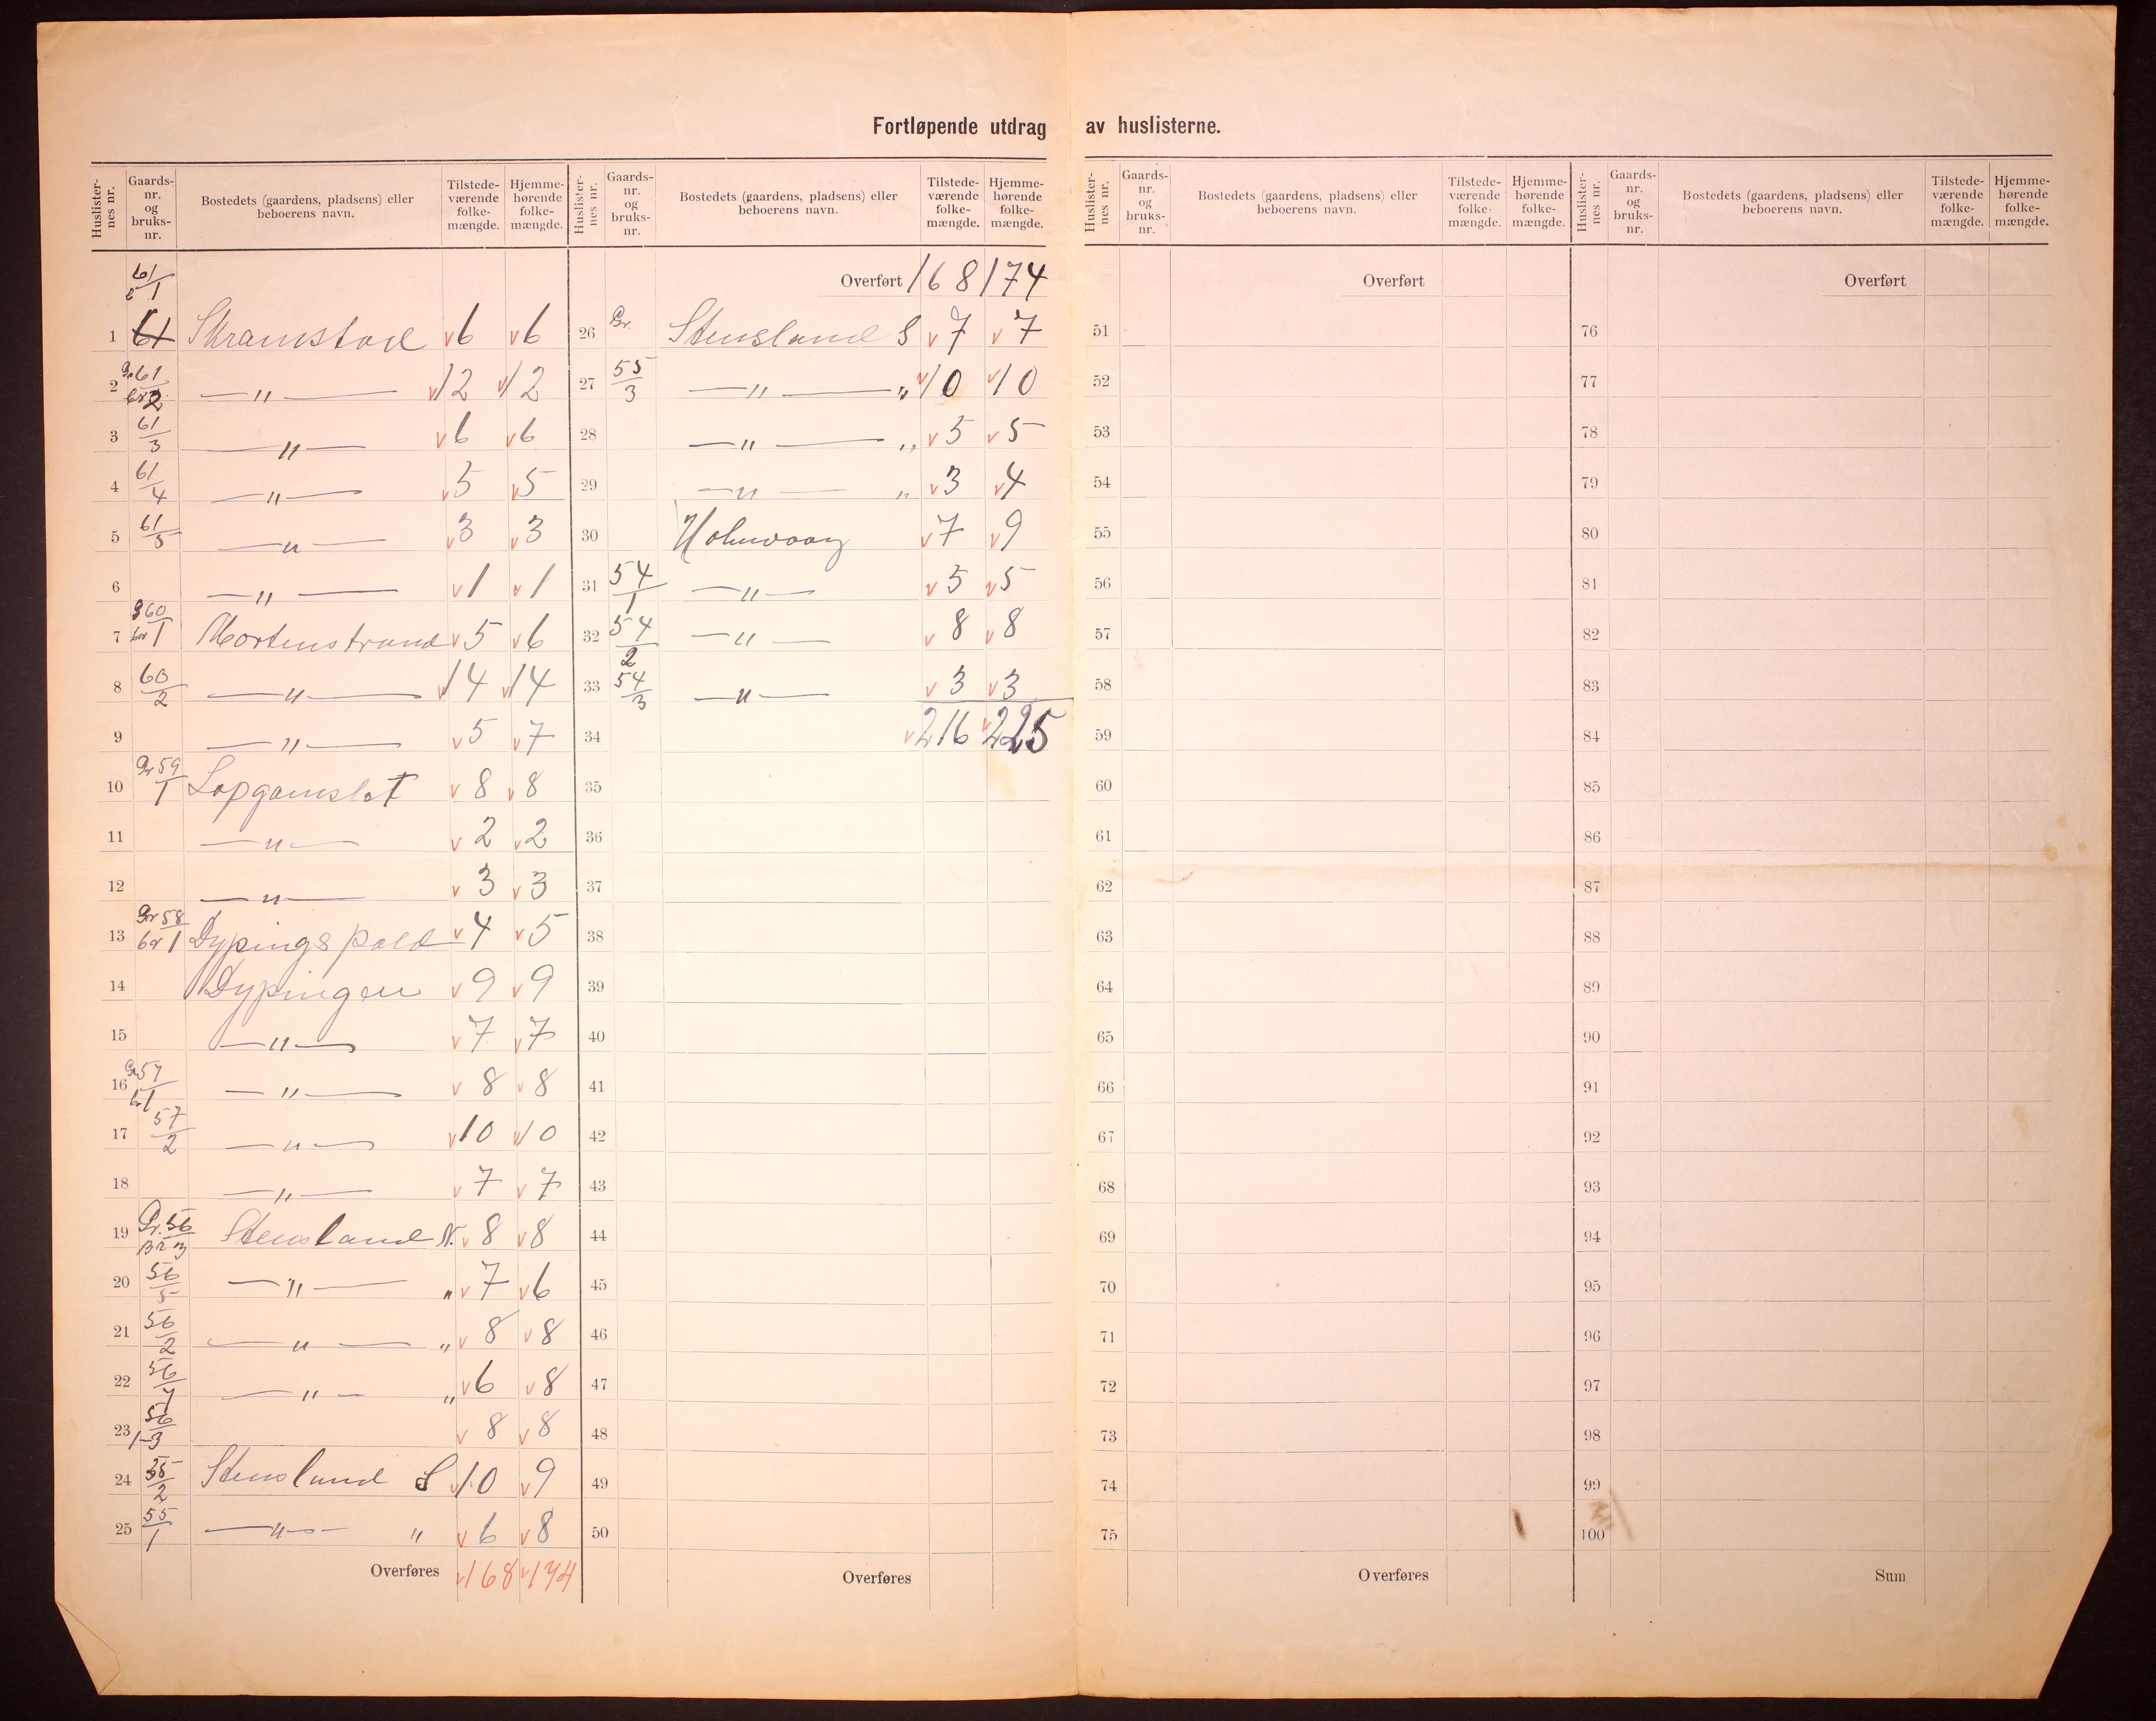 Fortløpende utdrag av huslisterne.
Huslisternes nr. Gaardsnr. og bruksnr. Bostedets (gaardens, pladsens) eller beboerens navn. Tilstedeværende folkemængde. Hjemmehørende folkemængde.
61/1
1 61 Skramstad v6 v6
2 Gr 61 br 2 —„— v12 v12
3 61/3 —„— v6 v6
4 61/4 —„— v5 v5
5 61/5 —„— v3 v3
6 —„— v1 v1
7 g 60 br 1 Mortenstrand v5 v6
8 60/2 —„— v14 v14
9 —„— v5 v7
10 Gr 59/1 v8 v8
11 —„— v2 v2
12 —„— v3 v3
13 Gr 58 br 1 Dypings v4 v5
14 Dypingen v9 v9
15 —„— v7 v7
16 Gr 57 br 1 —„— v8 v8
17 57/2 —„— v10 v10
18 —„— v7 v7
19 Gr. 56 Br 3 Stensland N. v8 v8
20 56/5 —„— „ v7 v6
21 56/2 —„— „ v8 v8
22 56 —„— „ v6 v8
23 56 1-3 v8 v8
24 55/2 Stensland S v10 v9
25 55/1 —„— „ v6 v8
Overføres v168 v174
Huslisternes nr. Gaardsnr. og bruksnr. Bostedets (gaardens, pladsens) eller beboerens navn. Tilstedeværende folkemængde. Hjemmehørende folkemængde.
Overført 168 174
26 Gr. Stensland S v7 v7
27 55/3 —„— „ v10 v10
28 —„— „ v5 v5
29 —„— „ v3 v4
30 Holmvaag v7 v9
31 54/1 —„— v5 v5
32 54/2 —„— v8 v8
33 54/3 —„— v3 v3
34 v216 v225
35
36
37
38
39
40
41
42
43
44
45
46
47
48
49
50
Overføres
Huslisternes nr. Gaardsnr. og bruksnr. Bostedets (gaardens, pladsens) eller beboerens navn. Tilstedeværende folkemængde. Hjemmehørende folkemængde.
Overført
51
52
53
54
55
56
57
58
59
60
61
62
63
64
65
66
67
68
69
70
71
72
73
74
75
Overføres
Huslisternes nr. Gaardsnr. og bruksnr. Bostedets (gaardens, pladsens) eller beboerens navn. Tilstedeværende folkemængde. Hjemmehørende folkemængde.
Overført
76
77
78
79
80
81
82
83
84
85
86
87
88
89
90
91
92
93
94
95
96
97
98
99
100
Sum